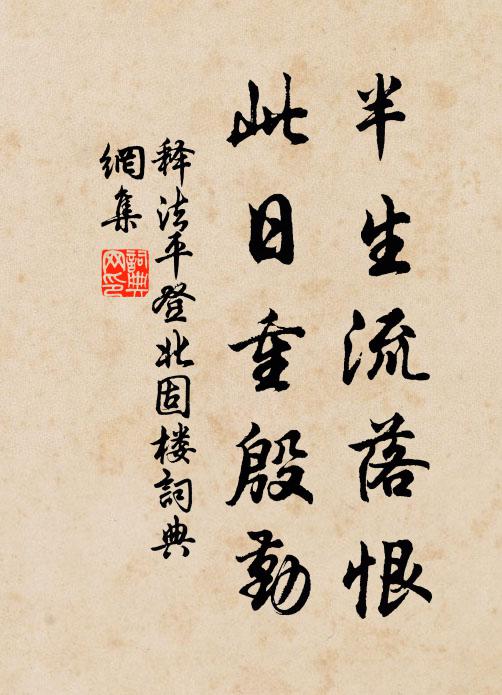 半生流落恨
此日重殷勤
释法平登北固楼詞典
網集
詞典
网印